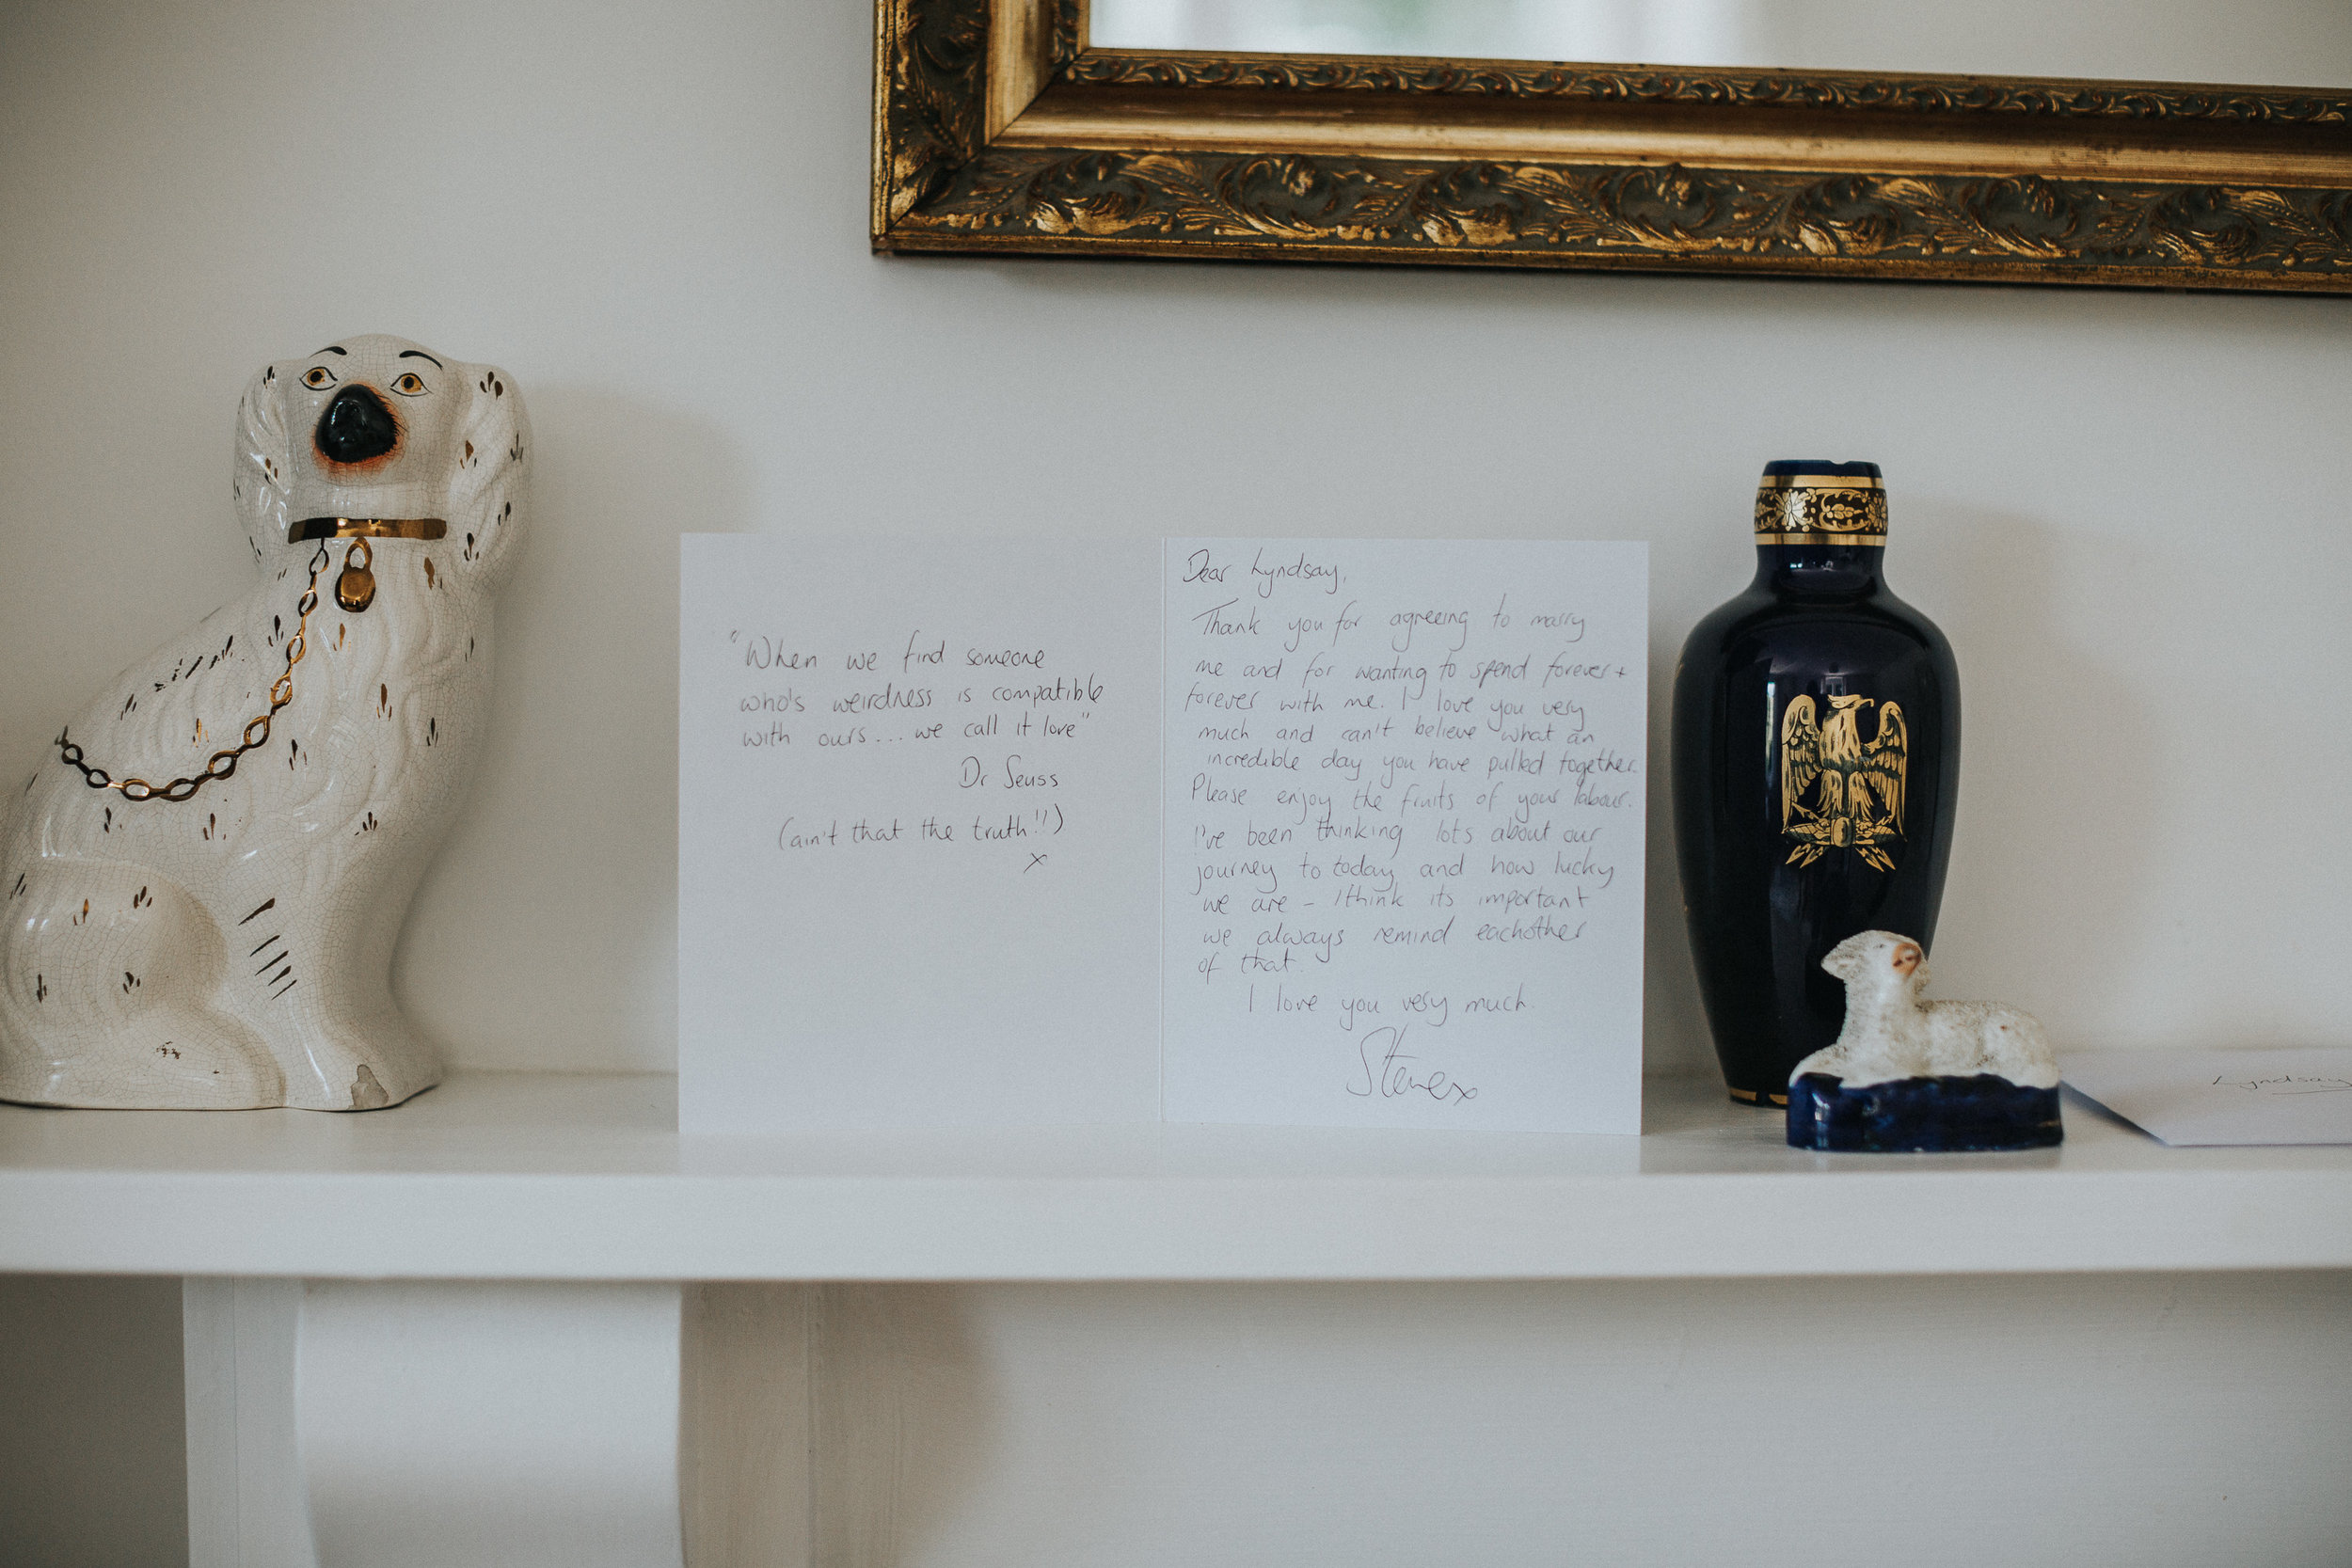 "When we find someone
who's weirdness is compatible
with ours... we call it love"
Dr Seuss
(ain't that the truth!!)
x
Dear Lyndsay,
Thank you for agreeing to marry
me and for wanting to spend forever +
forever with me. I love you very
much and can't believe what an
incredible day you have pulled together.
Please enjoy the fruits of your labour.
I've been thinking lots about our
journey to today and how lucky
we are - I think its important
we always remind eachother
of that.
I love you very much.
Steve x
Lyndsay